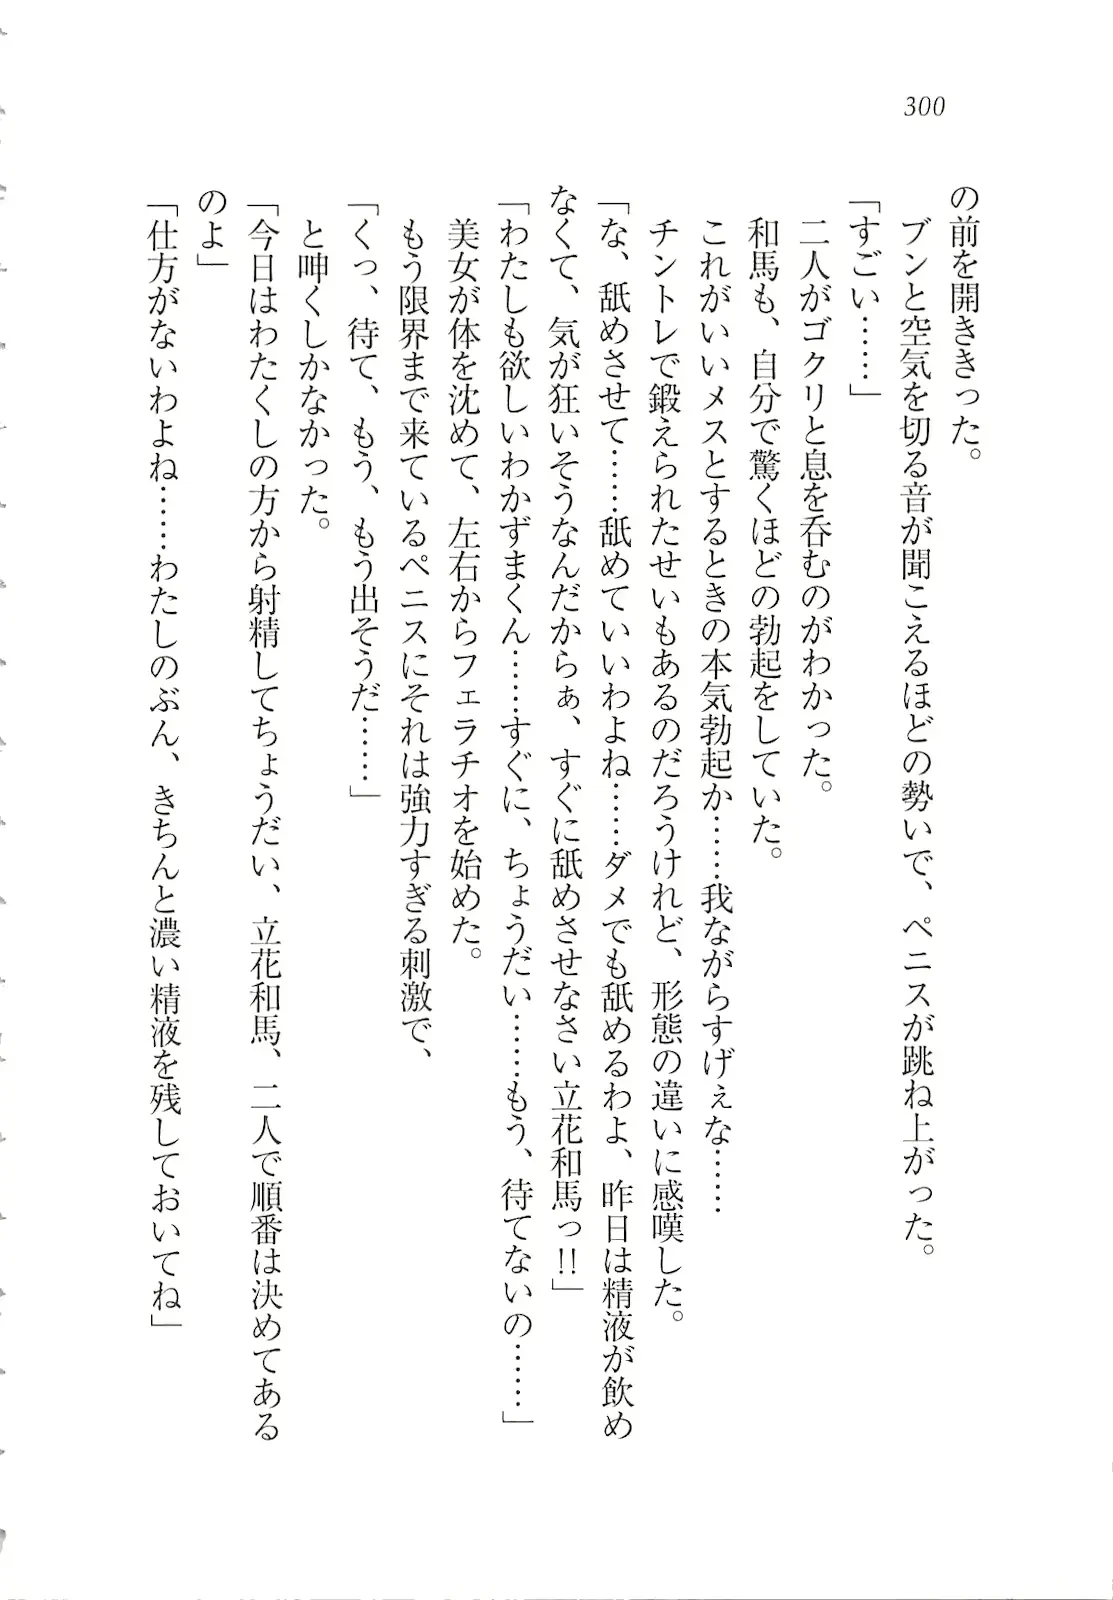 300
の前を開ききった。
ブンと空気を切る音が聞こえるほどの勢いで、ペニスが跳ね上がった。
「すごい……」
二人がゴクリと息を呑むのがわかった。
和馬も、自分で驚くほどの勃起をしていた。
これがいいメスとするときの本気勃起か……我ながらすげぇな……
チントレで鍛えられたせいもあるのだろうけれど、形態の違いに感嘆した。
「な、舐めさせて……舐めていいわよね……ダメでも舐めるわよ、昨日は精液が飲め
なくて、気が狂いそうなんだからぁ、すぐに舐めさせなさい立花和馬っ!!」
「わたしも欲しいわかずまくん……すぐに、ちょうだい……もう、待てないの……」
美女が体を沈めて、左右からフェラチオを始めた。
もう限界まで来ているペニスにそれは強力すぎる刺激で、
「くっ、待て、もう、もう出そうだ……」
と呻くしかなかった。
「今日はわたくしの方から射精してちょうだい、立花和馬、二人で順番は決めてある
のよ」
「仕方がないわよね……わたしのぶん、きちんと濃い精液を残しておいてね」